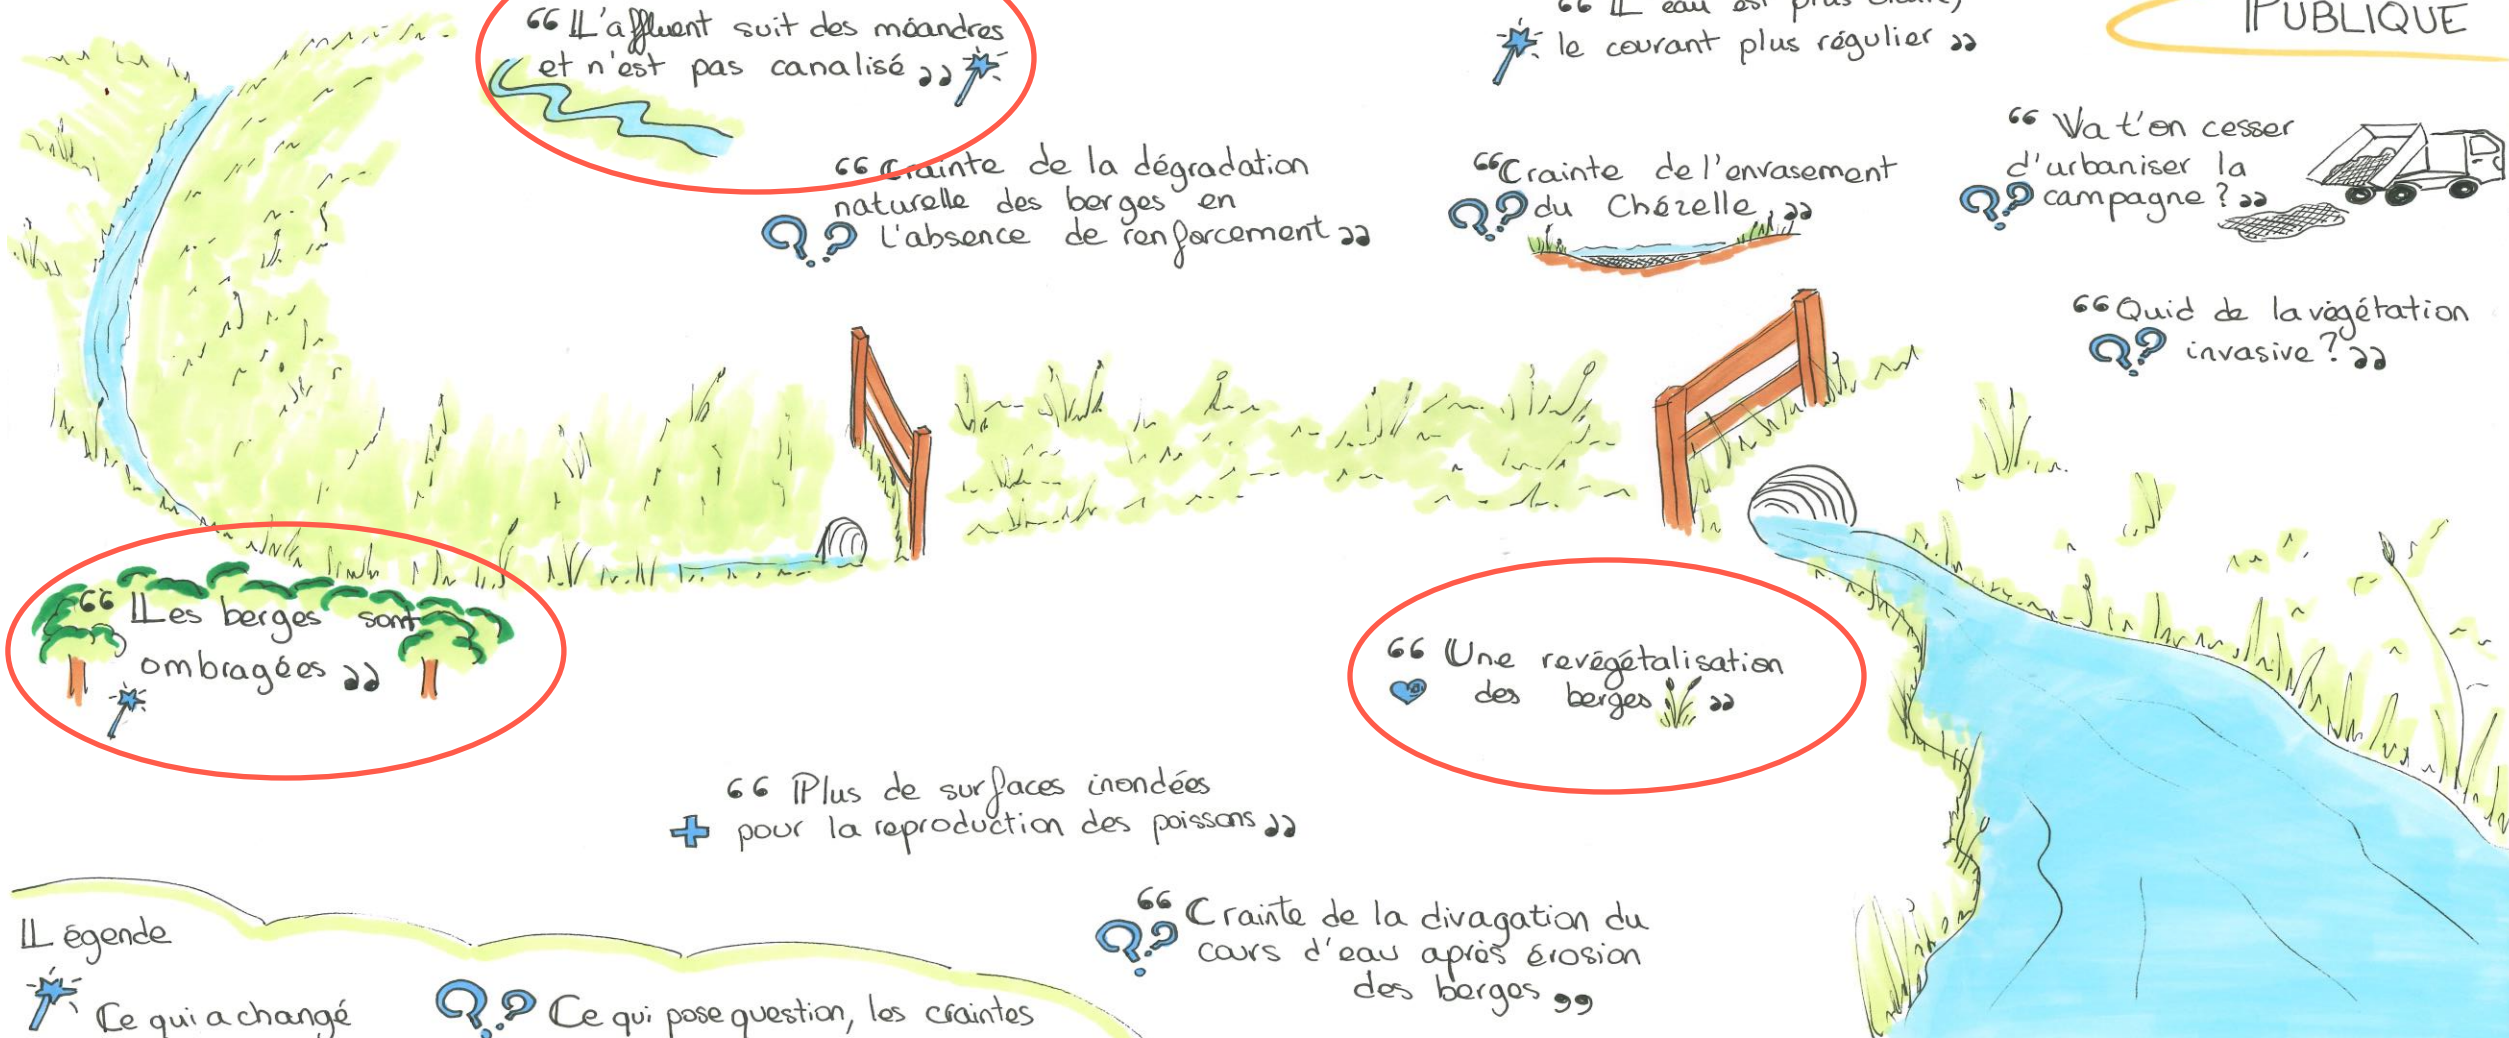 “L'affluent suit des méandres
et n'est pas canalisé”
“L'eau est plus claire,
le courant plus régulier”
PUBLIQUE
“Crainte de la dégradation
naturelle des berges en
l'absence de renforcement”
“Crainte de l'envasement
du Chézelle”
“Va t'on cesser
d'urbaniser la
campagne ?”
“Quid de la végétation
invasive ?”
“Les berges sont
ombragées”
“Une revégétalisation
des berges”
“Plus de surfaces inondées
pour la reproduction des poissons”
“Crainte de la divagation du
cours d'eau après érosion
des berges”
Légende
Ce qui a changé
Ce qui pose question, les craintes